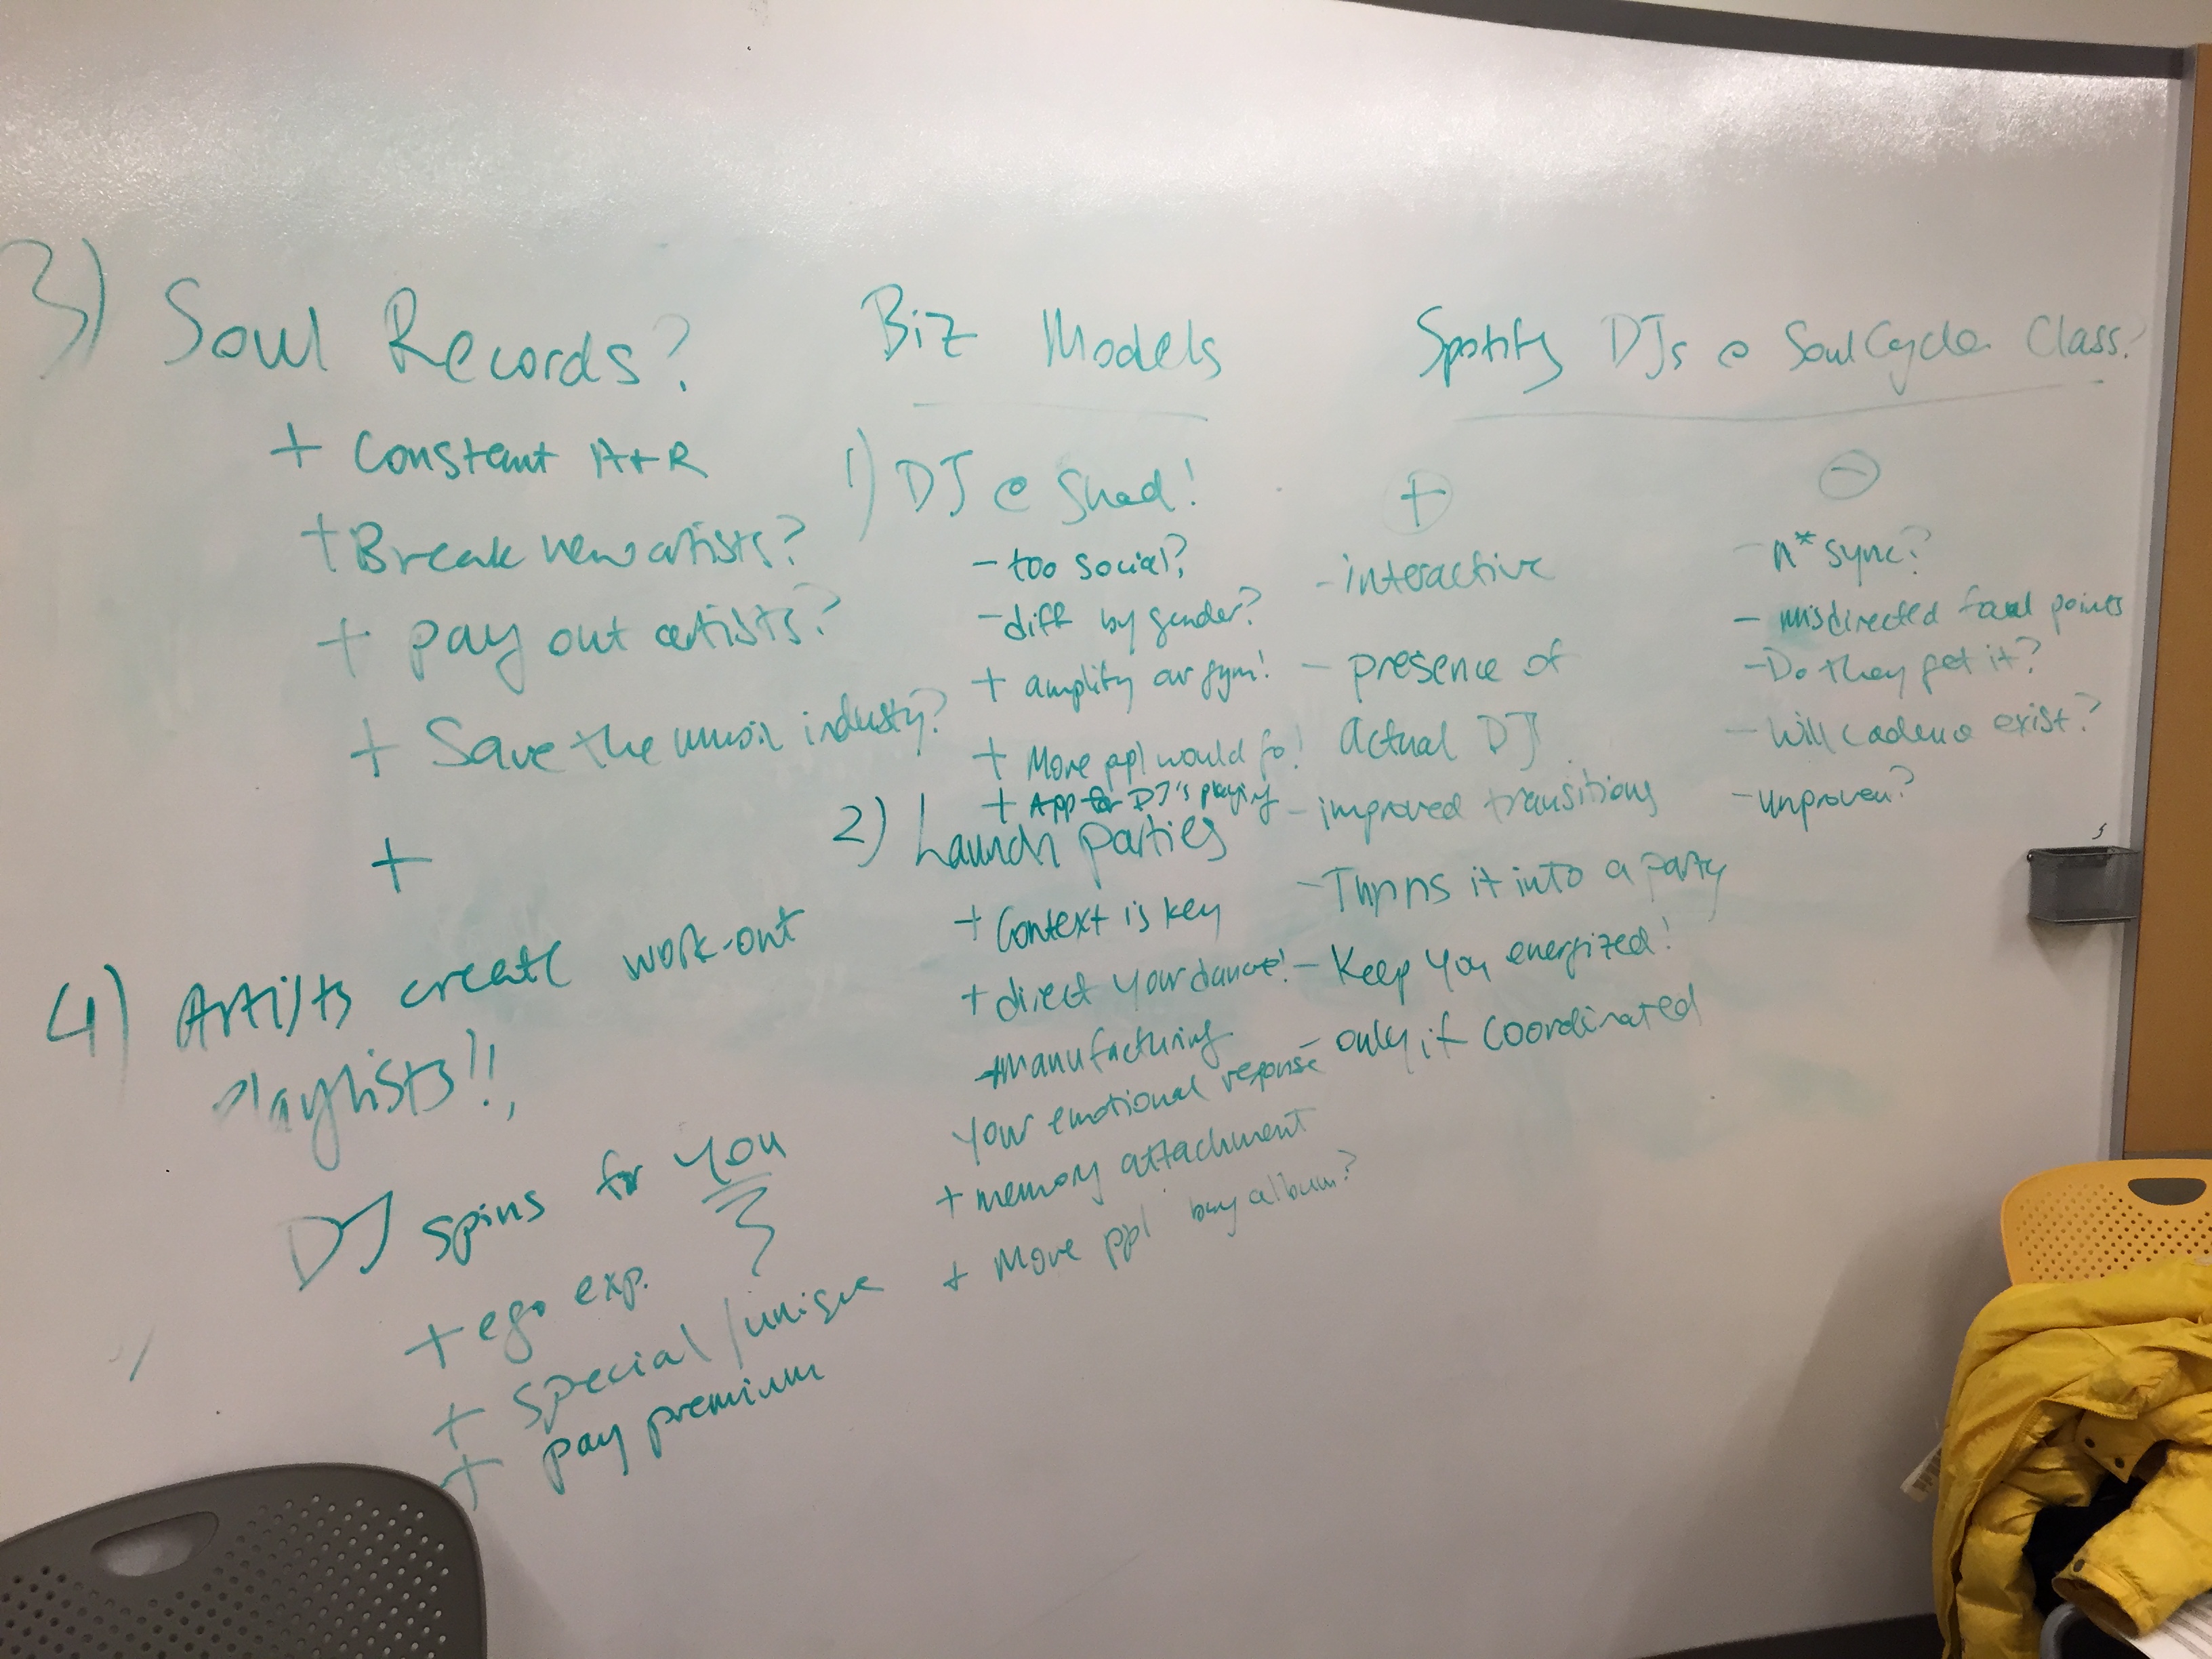 3) Soul Records?
+ Constant A+R
+ Break new artists?
+ pay out artists?
+ Save the music industry?
+
4) Artists create work-out
Playlists!!,
DJ spins for you
+ ego exp.
+ Special/unique
+ pay premium
Biz Models
1) DJ @ Shad!
- too social?
- diff by gender?
+ amplify our gym!
+ More ppl would go!
+ App for DJ's playing
2) Launch parties
+ Context is key
+ direct your dance!
+ manufacturing
your emotional reponse
+ memory attachment
+ More ppl buy album?
Spotify DJs @ SoulCycle Class?
+
- interactive
- presence of
Actual DJ
- improved transitions
- Turns it into a party
- Keep you energized!
- only if coordinated
-
- n*sync?
- misdirected focal points
- Do they get it?
- Will cadence exist?
- unproven?